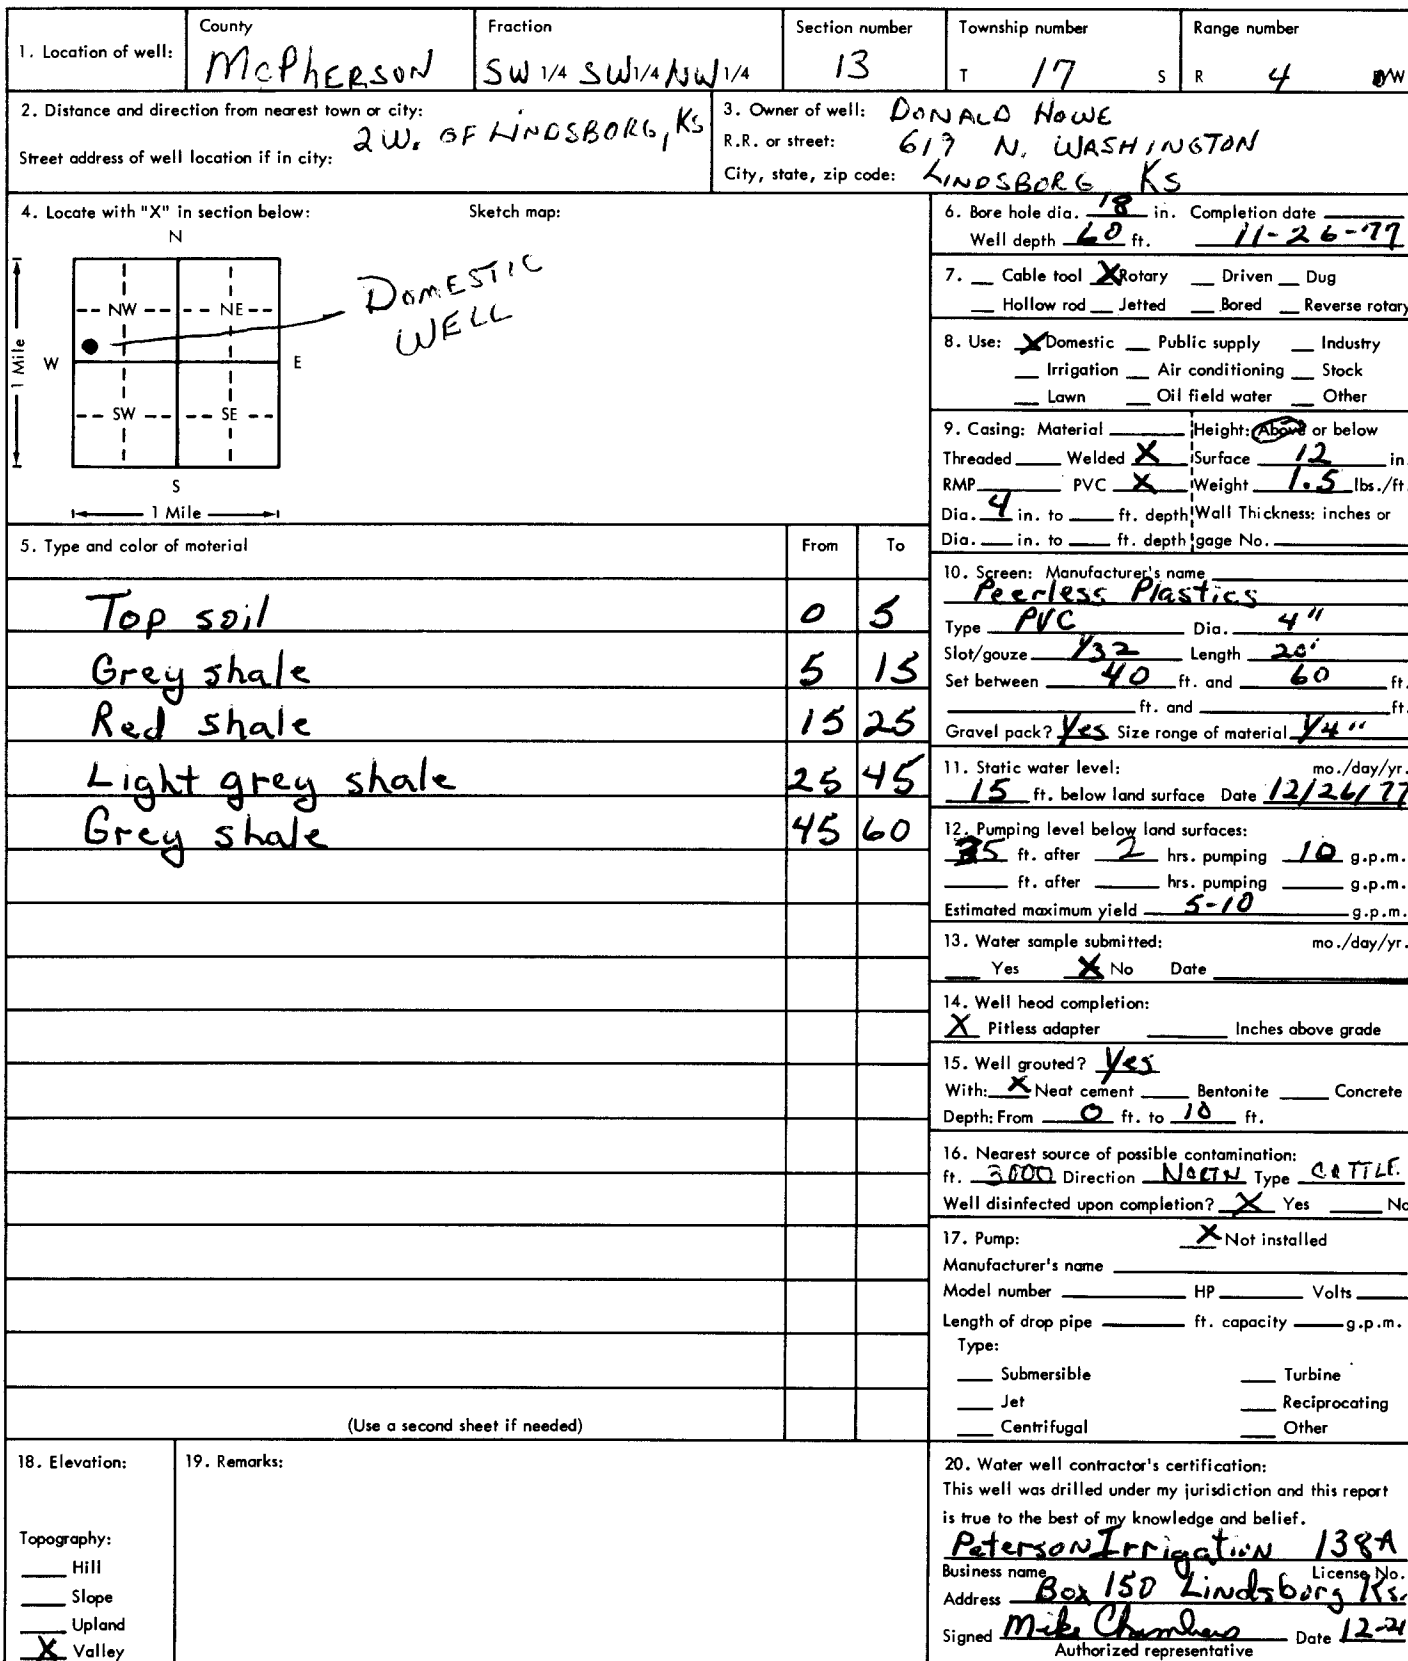 1. Location of well: County McPHERSON Fraction SW 1/4 SW 1/4 NW 1/4 Section number 13 Township number T 17 S Range number R 4 /W
2. Distance and direction from nearest town or city: 2 W. OF LINDSBORG, KS
Street address of well location if in city:
3. Owner of well: DONALD HOWE
R.R. or street: 617 N. WASHINGTON
City, state, zip code: LINDSBORG KS
4. Locate with "X" in section below: Sketch map:
N
NW NE
W E
SW SE
S
1 Mile
1 Mile
DOMESTIC
WELL
5. Type and color of material From To
Top soil 0 5
Grey shale 5 15
Red shale 15 25
Light grey shale 25 45
Grey shale 45 60
(Use a second sheet if needed)
6. Bore hole dia. 18 in. Completion date
Well depth 60 ft. 11-26-77
7. __ Cable tool X Rotary __ Driven __ Dug
__ Hollow rod __ Jetted __ Bored __ Reverse rotary
8. Use: X Domestic __ Public supply __ Industry
__ Irrigation __ Air conditioning __ Stock
__ Lawn __ Oil field water __ Other
9. Casing: Material ____ Height: Above or below
Threaded ____ Welded X Surface 12 in.
RMP ____ PVC X Weight 1.5 lbs./ft.
Dia. 4 in. to ____ ft. depth Wall Thickness: inches or
Dia. ____ in. to ____ ft. depth gage No. ____
10. Screen: Manufacturer's name
Peerless Plastics
Type PVC Dia. 4"
Slot/gouze 1/32 Length 20'
Set between 40 ft. and 60 ft.
____ ft. and ____ ft.
Gravel pack? Yes Size range of material 1/4"
11. Static water level: mo./day/yr.
15 ft. below land surface Date 12/26/77
12. Pumping level below land surfaces:
35 ft. after 2 hrs. pumping 10 g.p.m.
____ ft. after ____ hrs. pumping ____ g.p.m.
Estimated maximum yield 5-10 g.p.m.
13. Water sample submitted: mo./day/yr.
__ Yes X No Date ____
14. Well head completion:
X Pitless adapter ____ Inches above grade
15. Well grouted? Yes
With: X Neat cement ____ Bentonite ____ Concrete
Depth: From 0 ft. to 10 ft.
16. Nearest source of possible contamination:
ft. 3000 Direction NORTH Type CATTLE
Well disinfected upon completion? X Yes ____ No
17. Pump: X Not installed
Manufacturer's name ____
Model number ____ HP ____ Volts ____
Length of drop pipe ____ ft. capacity ____ g.p.m.
Type:
__ Submersible __ Turbine
__ Jet __ Reciprocating
__ Centrifugal __ Other
18. Elevation:
Topography:
__ Hill
__ Slope
__ Upland
X Valley
19. Remarks:
20. Water well contractor's certification:
This well was drilled under my jurisdiction and this report
is true to the best of my knowledge and belief.
Peterson Irrigation 138A
Business name License No.
Address Box 150 Lindsborg Ks.
Signed Mike Chambers Date 12-2
Authorized representative